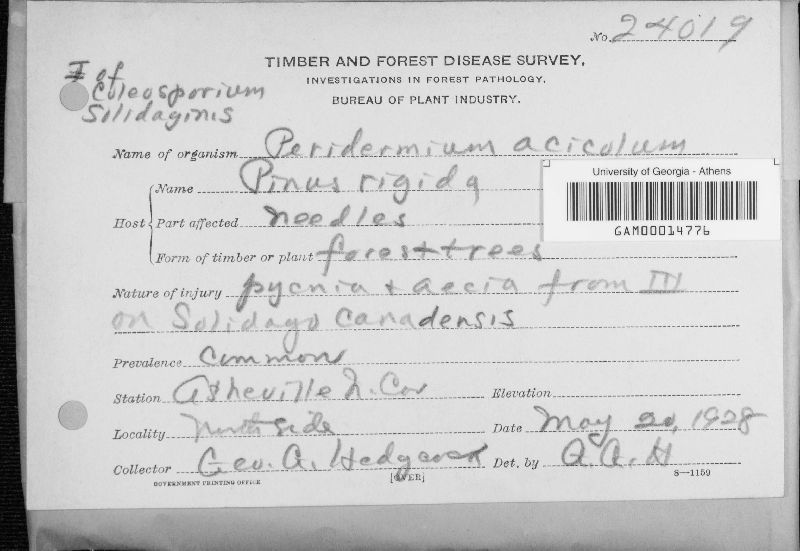 No. 24019
TIMBER AND FOREST DISEASE SURVEY,
INVESTIGATIONS IN FOREST PATHOLOGY,
BUREAU OF PLANT INDUSTRY.
I of
Coleosporium
Solidaginis
Name of organism Peridermium acicolum
University of Georgia - Athens
GAM00014776
Host Name Pinus rigida
Part affected needles
Form of timber or plant forest trees
Nature of injury pycnia + aecia from III
on Solidago canadensis
Prevalence Common
Station Asheville N. Car
Elevation
Locality North side
Date May 20, 1928
Collector Geo. G. Hedgcock
Det. by G. G. H
GOVERNMENT PRINTING OFFICE
[OVER]
8—1159